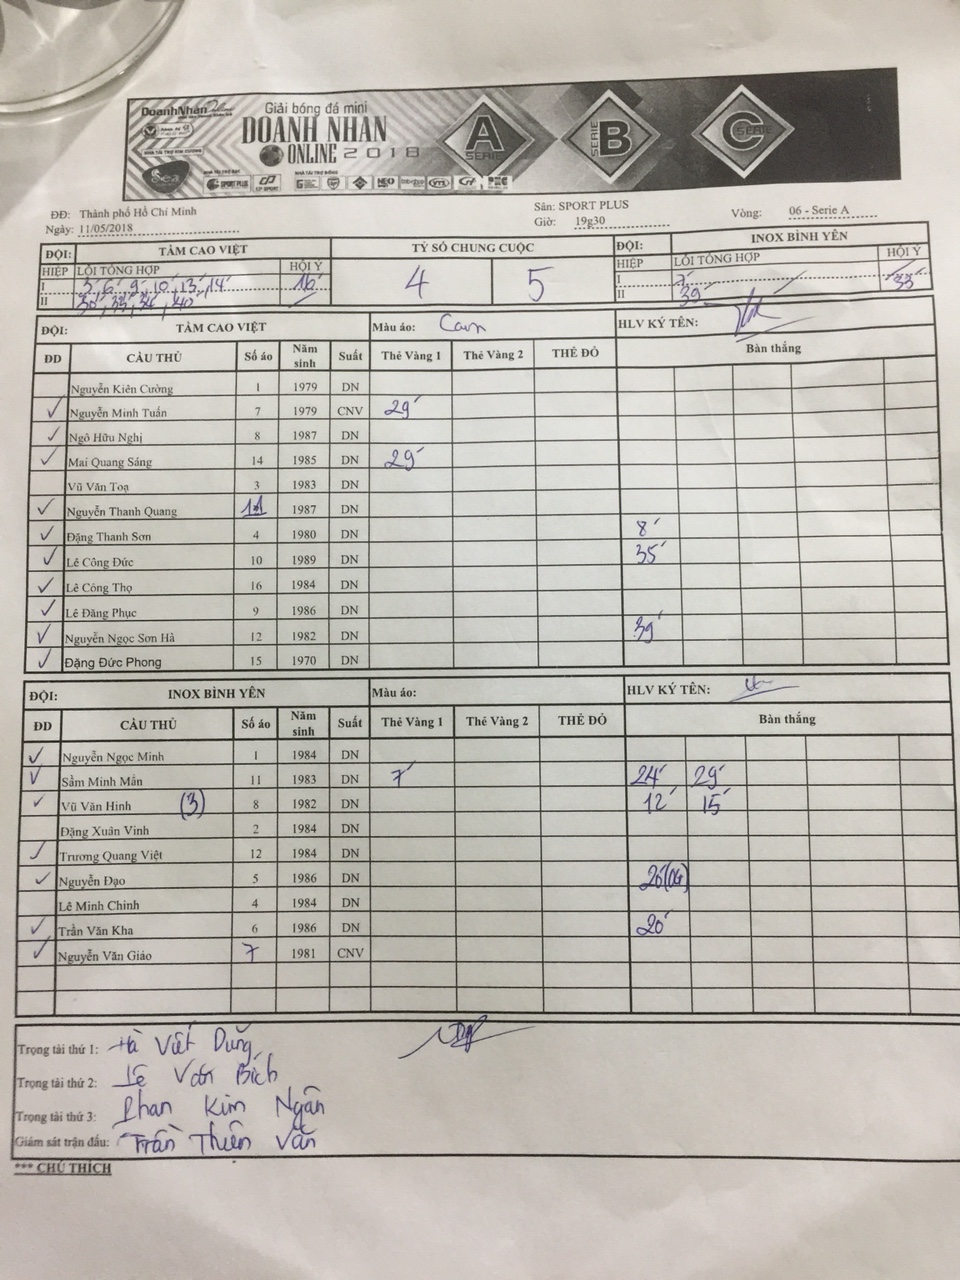 DoanhNhan Online
Giải bóng đá mini
DOANH NHAN
ONLINE 2018
NHÀ TÀI TRỢ KIM CƯƠNG
Sea
NHÀ TÀI TRỢ BẠC
NHÀ TÀI TRỢ ĐỒNG
SPORT PLUS
A SERIE
SERIE B
C SERIE
ĐĐ: Thành phố Hồ Chí Minh Sân: SPORT PLUS
Ngày: 11/05/2018 Giờ: 19g30 Vòng: 06 - Serie A
ĐỘI: TÂM CAO VIỆT TỶ SỐ CHUNG CUỘC ĐỘI: INOX BÌNH YÊN
HIỆP LỖI TỔNG HỢP HỘI Ý 4 5 HIỆP LỖI TỔNG HỢP HỘI Ý
I 3', 6', 9', 10', 13', 14' 16' I 7' 33'
II 30', 33', 34', 40' II 39'
ĐỘI: TÂM CAO VIỆT Màu áo: Cam HLV KÝ TÊN:
ĐD CẦU THỦ Số áo Năm sinh Suất Thẻ Vàng 1 Thẻ Vàng 2 THẺ ĐỎ Bàn thắng
Nguyễn Kiên Cường 1 1979 DN
✓ Nguyễn Minh Tuấn 7 1979 CNV 29'
✓ Ngô Hữu Nghị 8 1987 DN
✓ Mai Quang Sáng 14 1985 DN 29'
Vũ Văn Toạ 3 1983 DN
✓ Nguyễn Thanh Quang 11 1987 DN
✓ Đặng Thanh Sơn 4 1980 DN 8'
✓ Lê Công Đức 10 1989 DN 35'
✓ Lê Công Thọ 16 1984 DN
✓ Lê Đăng Phục 9 1986 DN
✓ Nguyễn Ngọc Sơn Hà 12 1982 DN 39'
✓ Đặng Đức Phong 15 1970 DN
ĐỘI: INOX BÌNH YÊN Màu áo: HLV KÝ TÊN:
ĐD CẦU THỦ Số áo Năm sinh Suất Thẻ Vàng 1 Thẻ Vàng 2 THẺ ĐỎ Bàn thắng
✓ Nguyễn Ngọc Minh 1 1984 DN
✓ Sầm Minh Mẫn 11 1983 DN 7' 24' 29'
✓ Vũ Văn Hinh (3) 8 1982 DN 12' 15'
Đặng Xuân Vinh 2 1984 DN
✓ Trương Quang Việt 12 1984 DN
✓ Nguyễn Đạo 5 1986 DN 26'(OG)
Lê Minh Chinh 4 1984 DN
✓ Trần Văn Kha 6 1986 DN 20'
✓ Nguyễn Văn Giáo 7 1981 CNV
Trọng tài thứ 1: Hà Viết Dũng
Trọng tài thứ 2: Lê Văn Bích
Trọng tài thứ 3: Phan Kim Ngân
Giám sát trận đấu: Trần Thiên Văn
*** CHÚ THÍCH